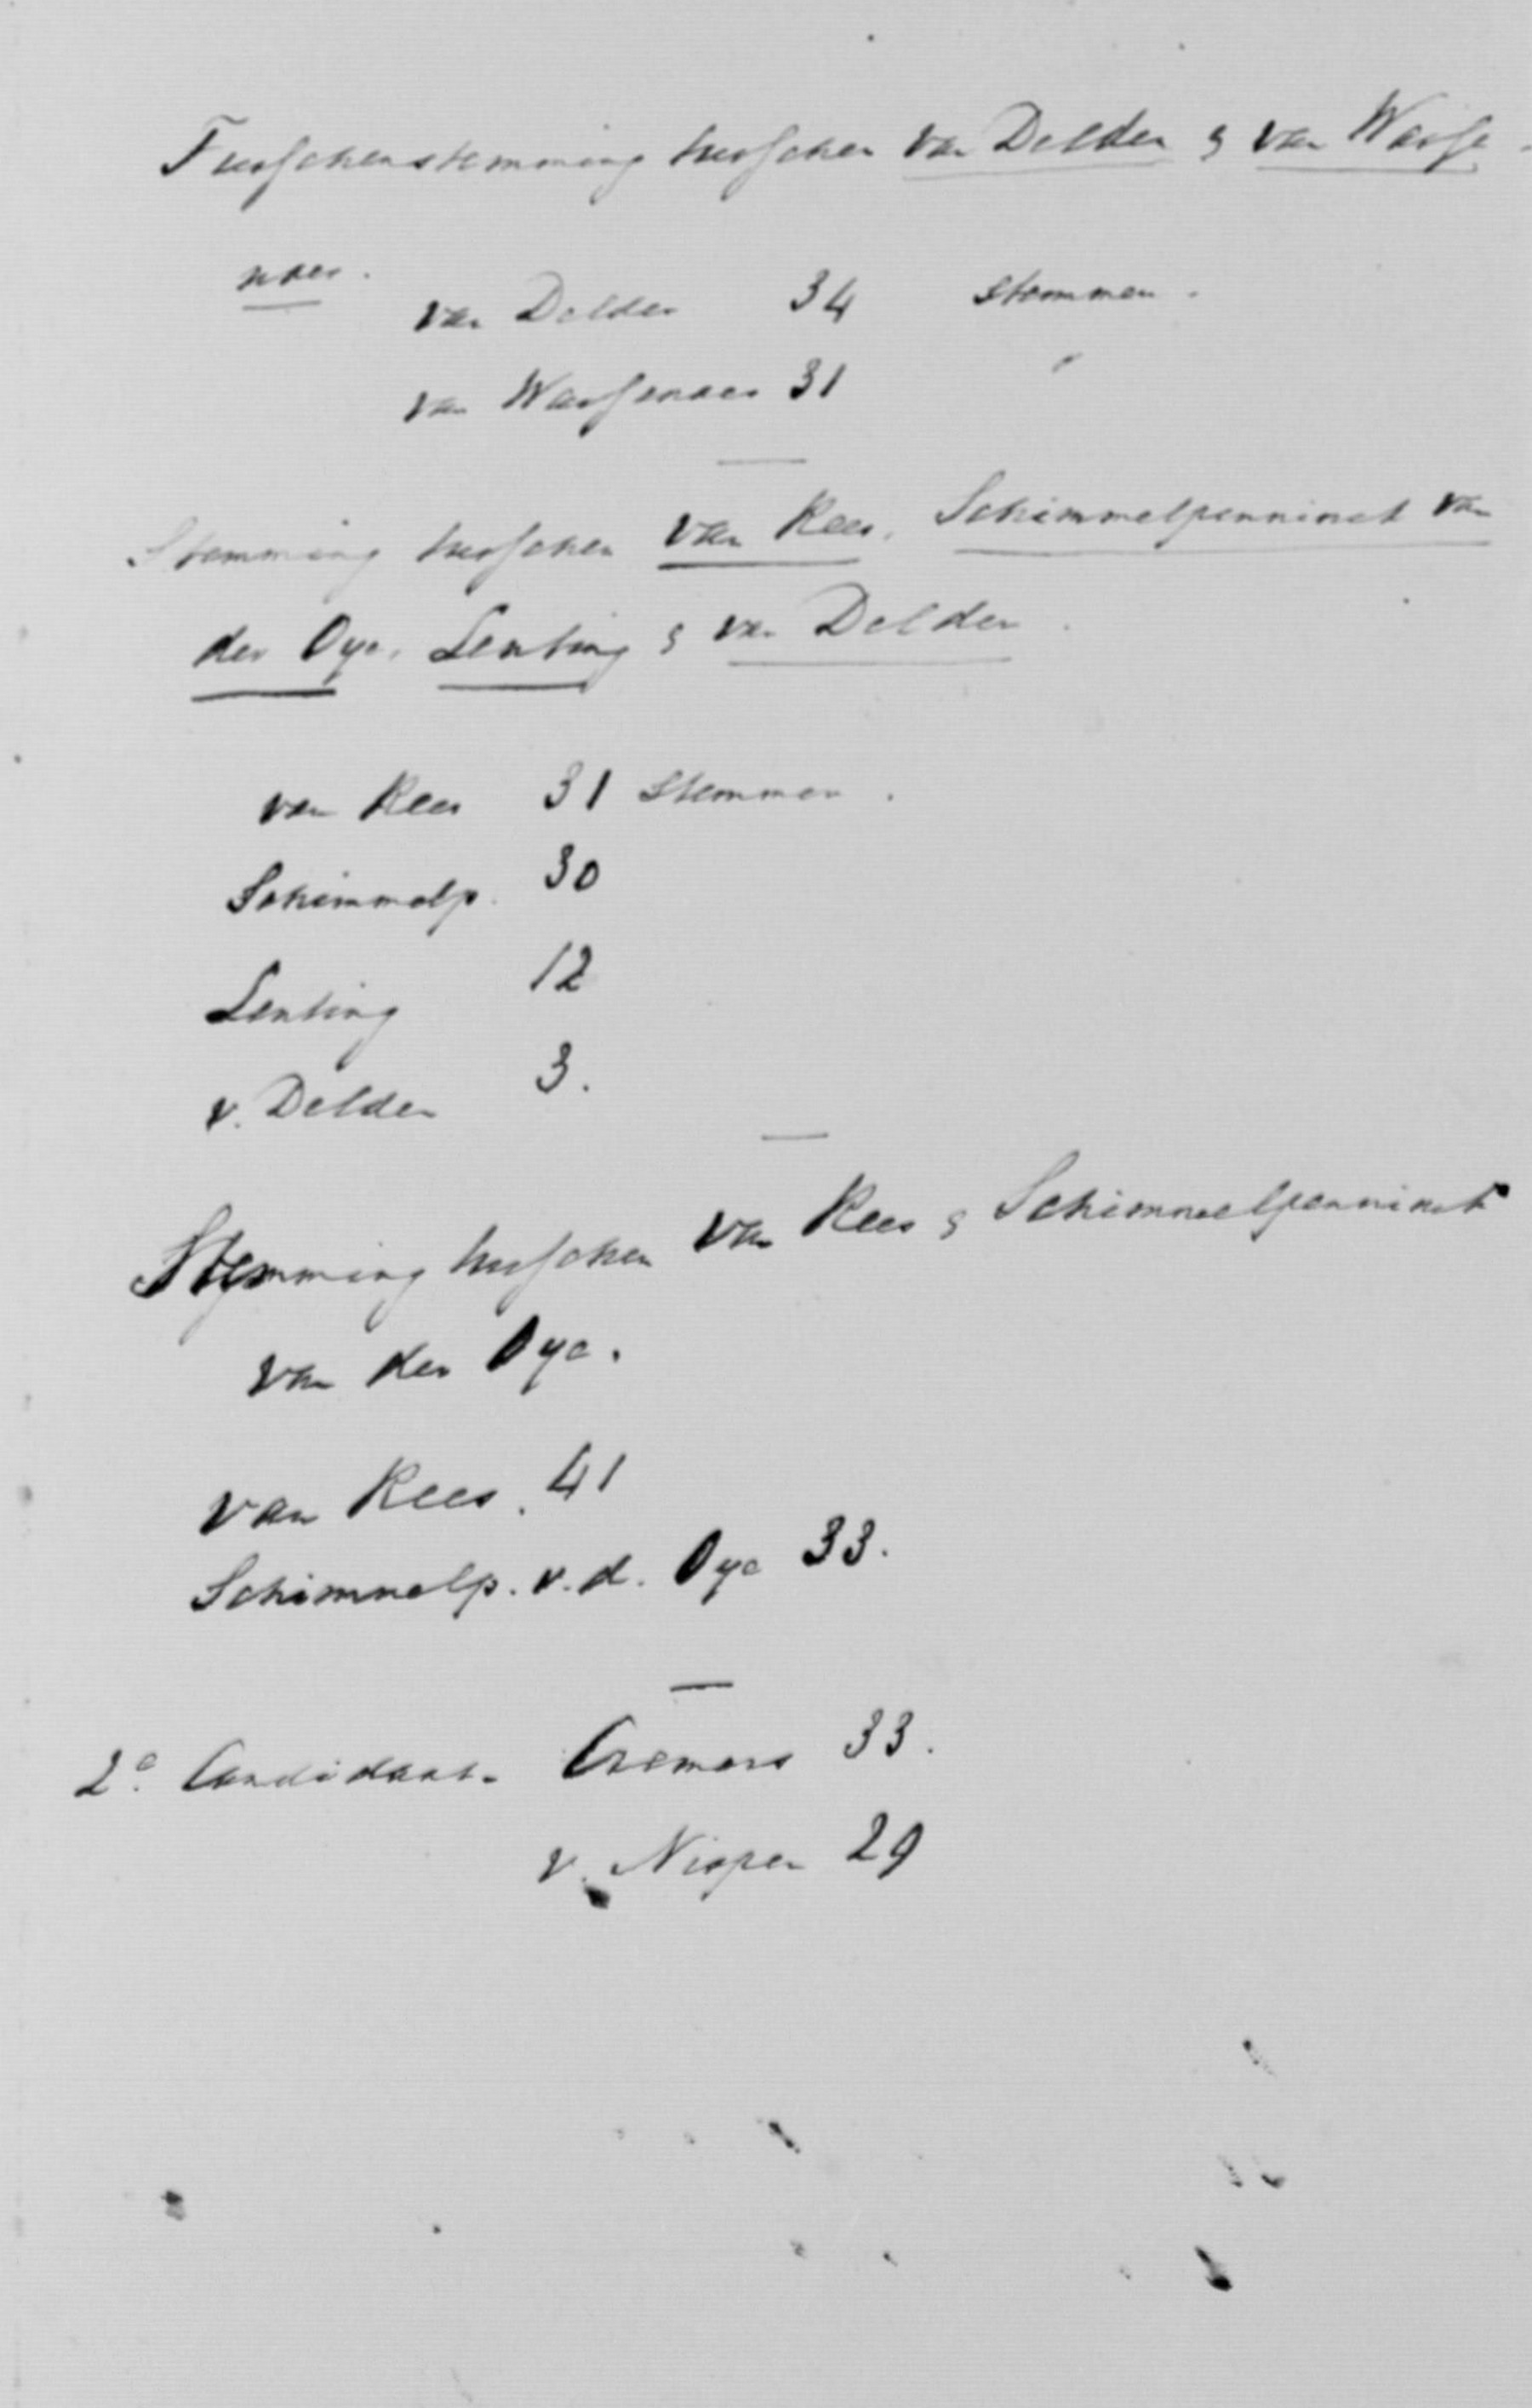 Tusschenstemming tusschen van Delden & van Wasse-
naer.
van Delden 34 stemmen.
van Wassenaer 31 "
Stemming tusschen van Rees, Schimmelpenninck van
der Oye, Lenting & van Delden.
van Rees 31 stemmen.
Schimmelp. 30
Lenting 12
v. Delden 3.
Stemming tusschen van Rees & Schimmelpenninck
van der Oye.
van Rees. 41
Schimmelp. v. d. Oye 33.
2e Candidaat. Cremers 33.
v. Nispen 29